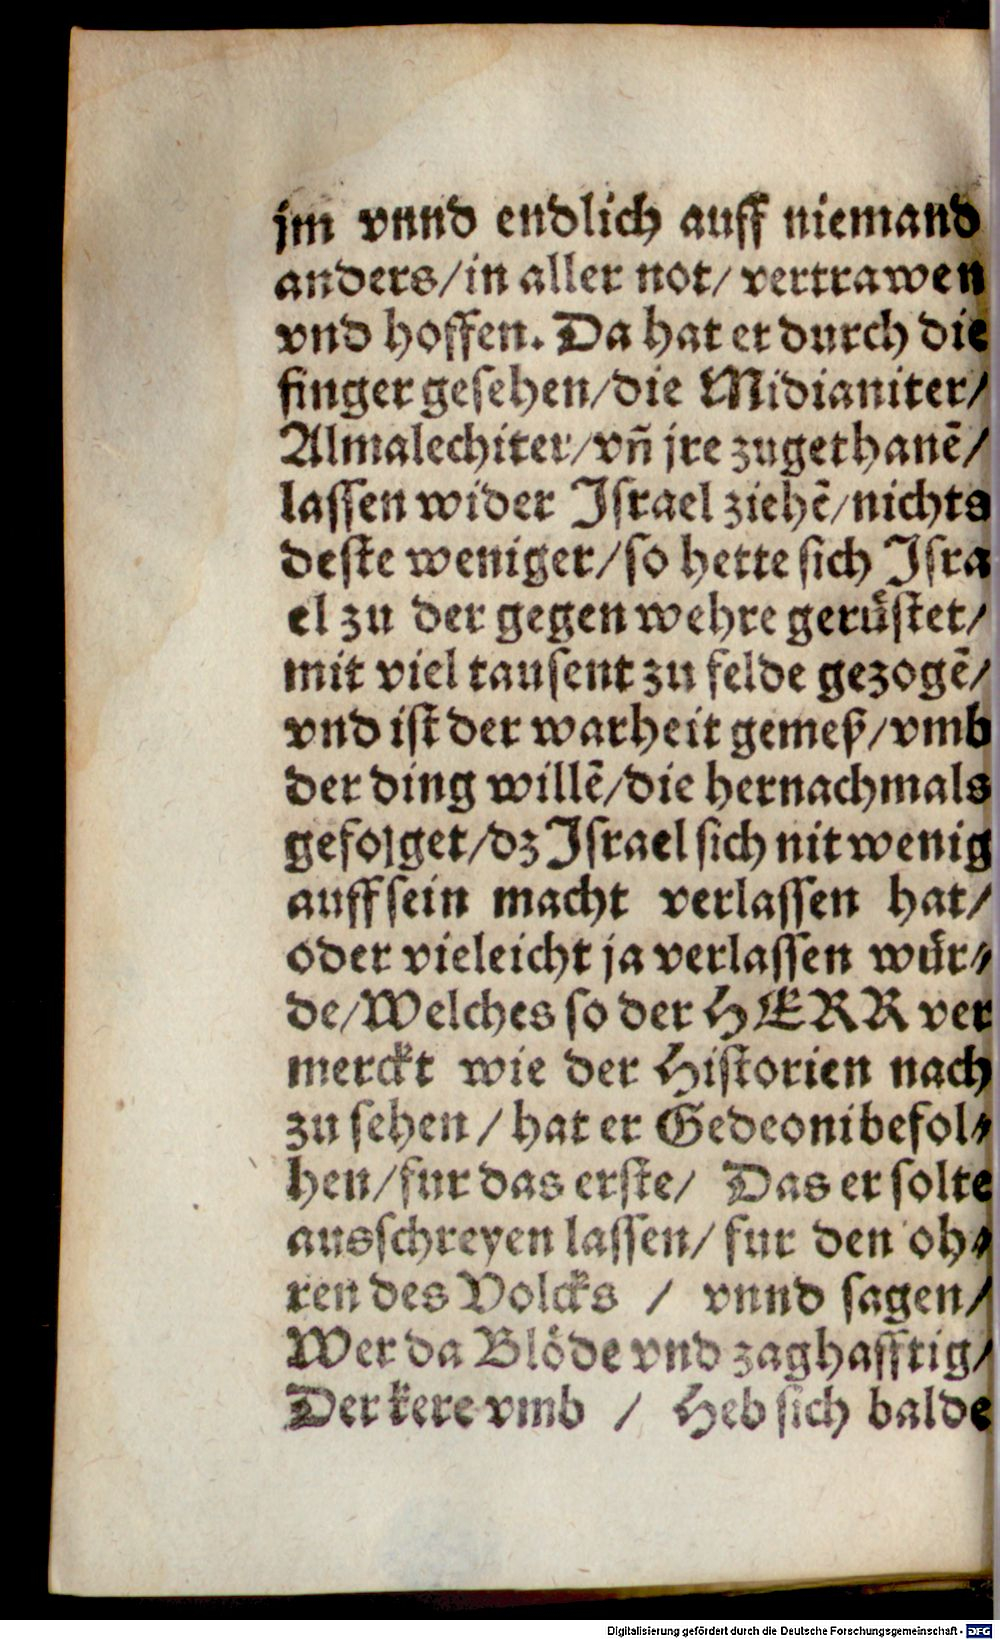 jm vnnd endlich auff niemand
anders/in aller not/ vertrawen
vnd hoffen. Da hat er durch die
finger gesehen/die Midianiter/
Almalechiter/vn̄ jre zugethanē/
lassen wider Israel ziehē/nichts
deste weniger/so hette sich Isra
el zu der gegen wehre gerüstet/
mit viel tausent zu felde gezogē/
vnd ist der warheit gemeß/vmb
der ding willē/die hernachmals
gefolget/dz Israel sich nit wenig
auff sein macht verlassen hat/
oder vieleicht ja verlassen wür⸗
de/Welches so der HERR ver
merckt wie der Historien nach
zu sehen / hat er Gedeoni befol⸗
hen/fur das erste/ Das er solte
ausschreyen lassen/ fur den oh⸗
ren des Volcks / vnnd sagen/
Wer da Blöde vnd zaghafftig/
Der kere vmb / Heb sich balde
Digitalisierung gefördert durch die Deutsche Forschungsgemeinschaft - DFG